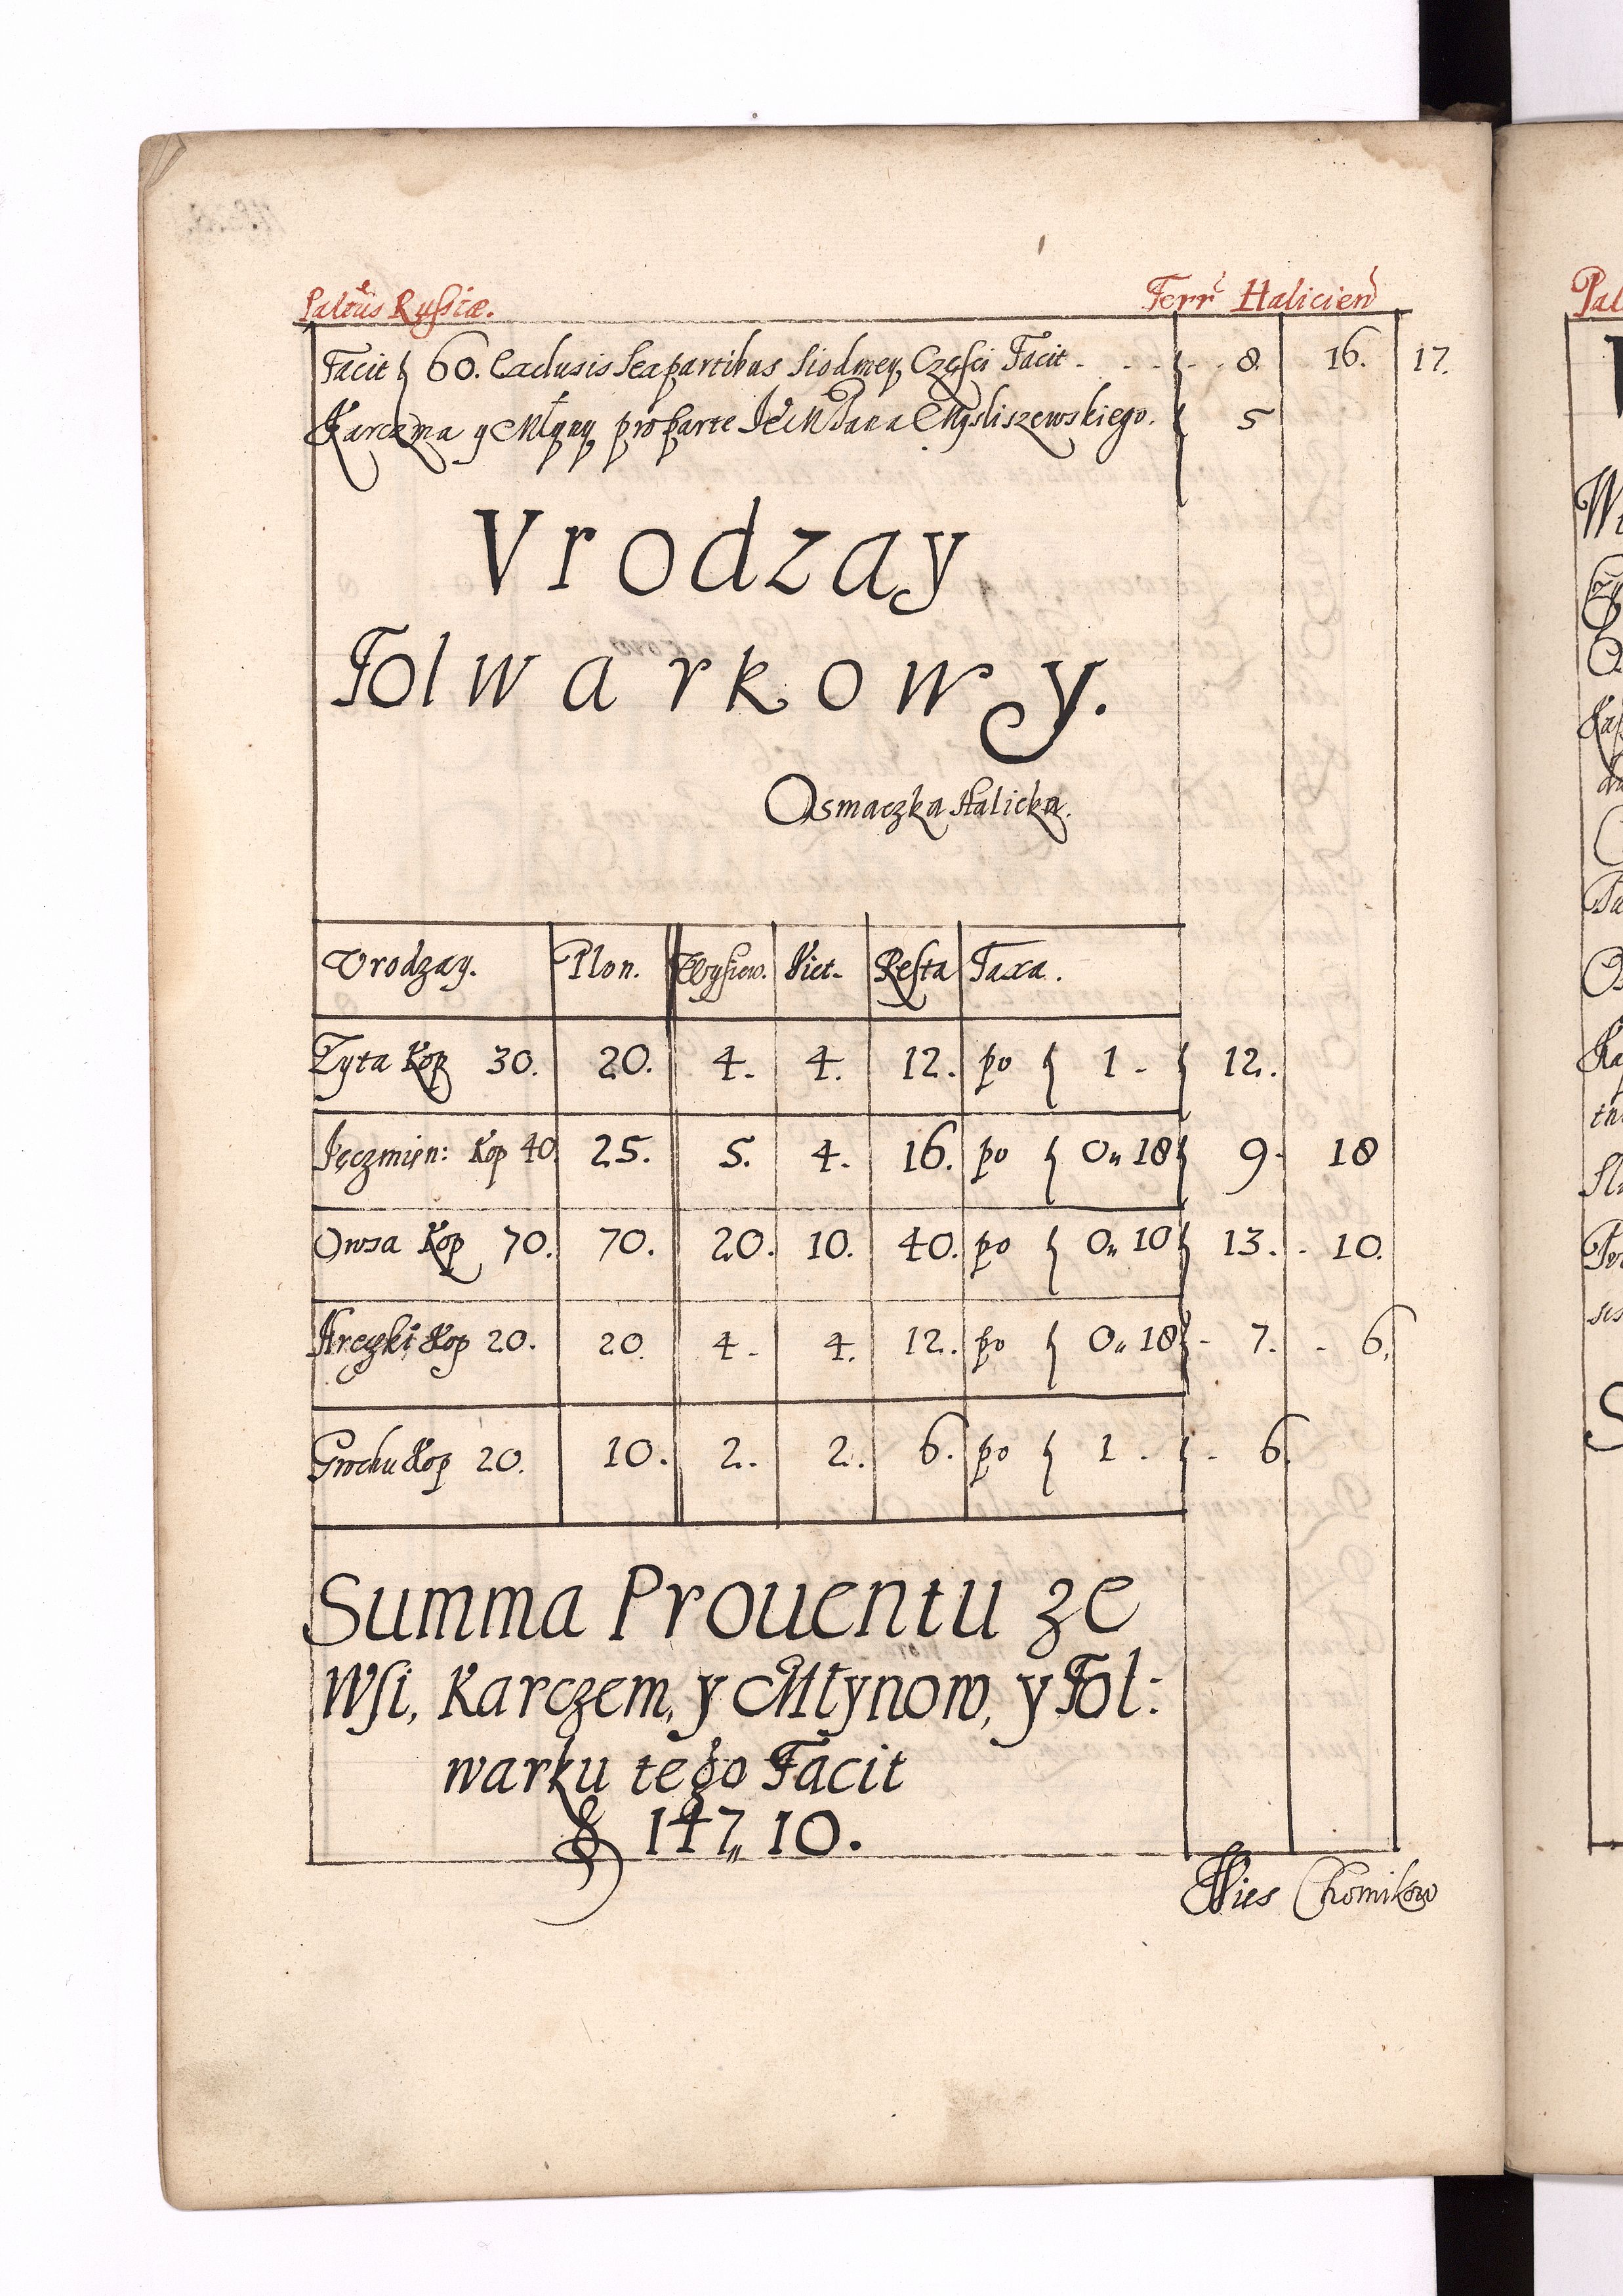 Paltus Russiæ. Terr Halicien
Facit 60. Exclusis sex partibus siodmey Częsci Facit - - - - 8. 16. 17.
Karczma y Młyny pro parte Je M Pana Mysliszewskiego. 5
Vrodzay
Folwarkowy.
Osmaczka Halicka.
Vrodzay. Plon. Wysiew. Vict. Resta Taxa.
Zyta Kop 30. 20. 4. 4. 12. po 1 - 12.
Jęczmien: Kop 40. 25. 5. 4. 16. po 0,, 18 9. 18
Owsa Kop 70. 70. 20. 10. 40. po 0,, 10 13. - 10.
Hreczki Kop 20. 20. 4 - 4. 12. po 0,, 18 - 7. - 6.
Grochu Kop 20. 10. 2. 2. 6. po 1 - - 6.
Summa Prouentu ze
Wsi, Karczem, y Młynow, y Fol:
warku tego Facit
147,, 10.
Wies Chomikow